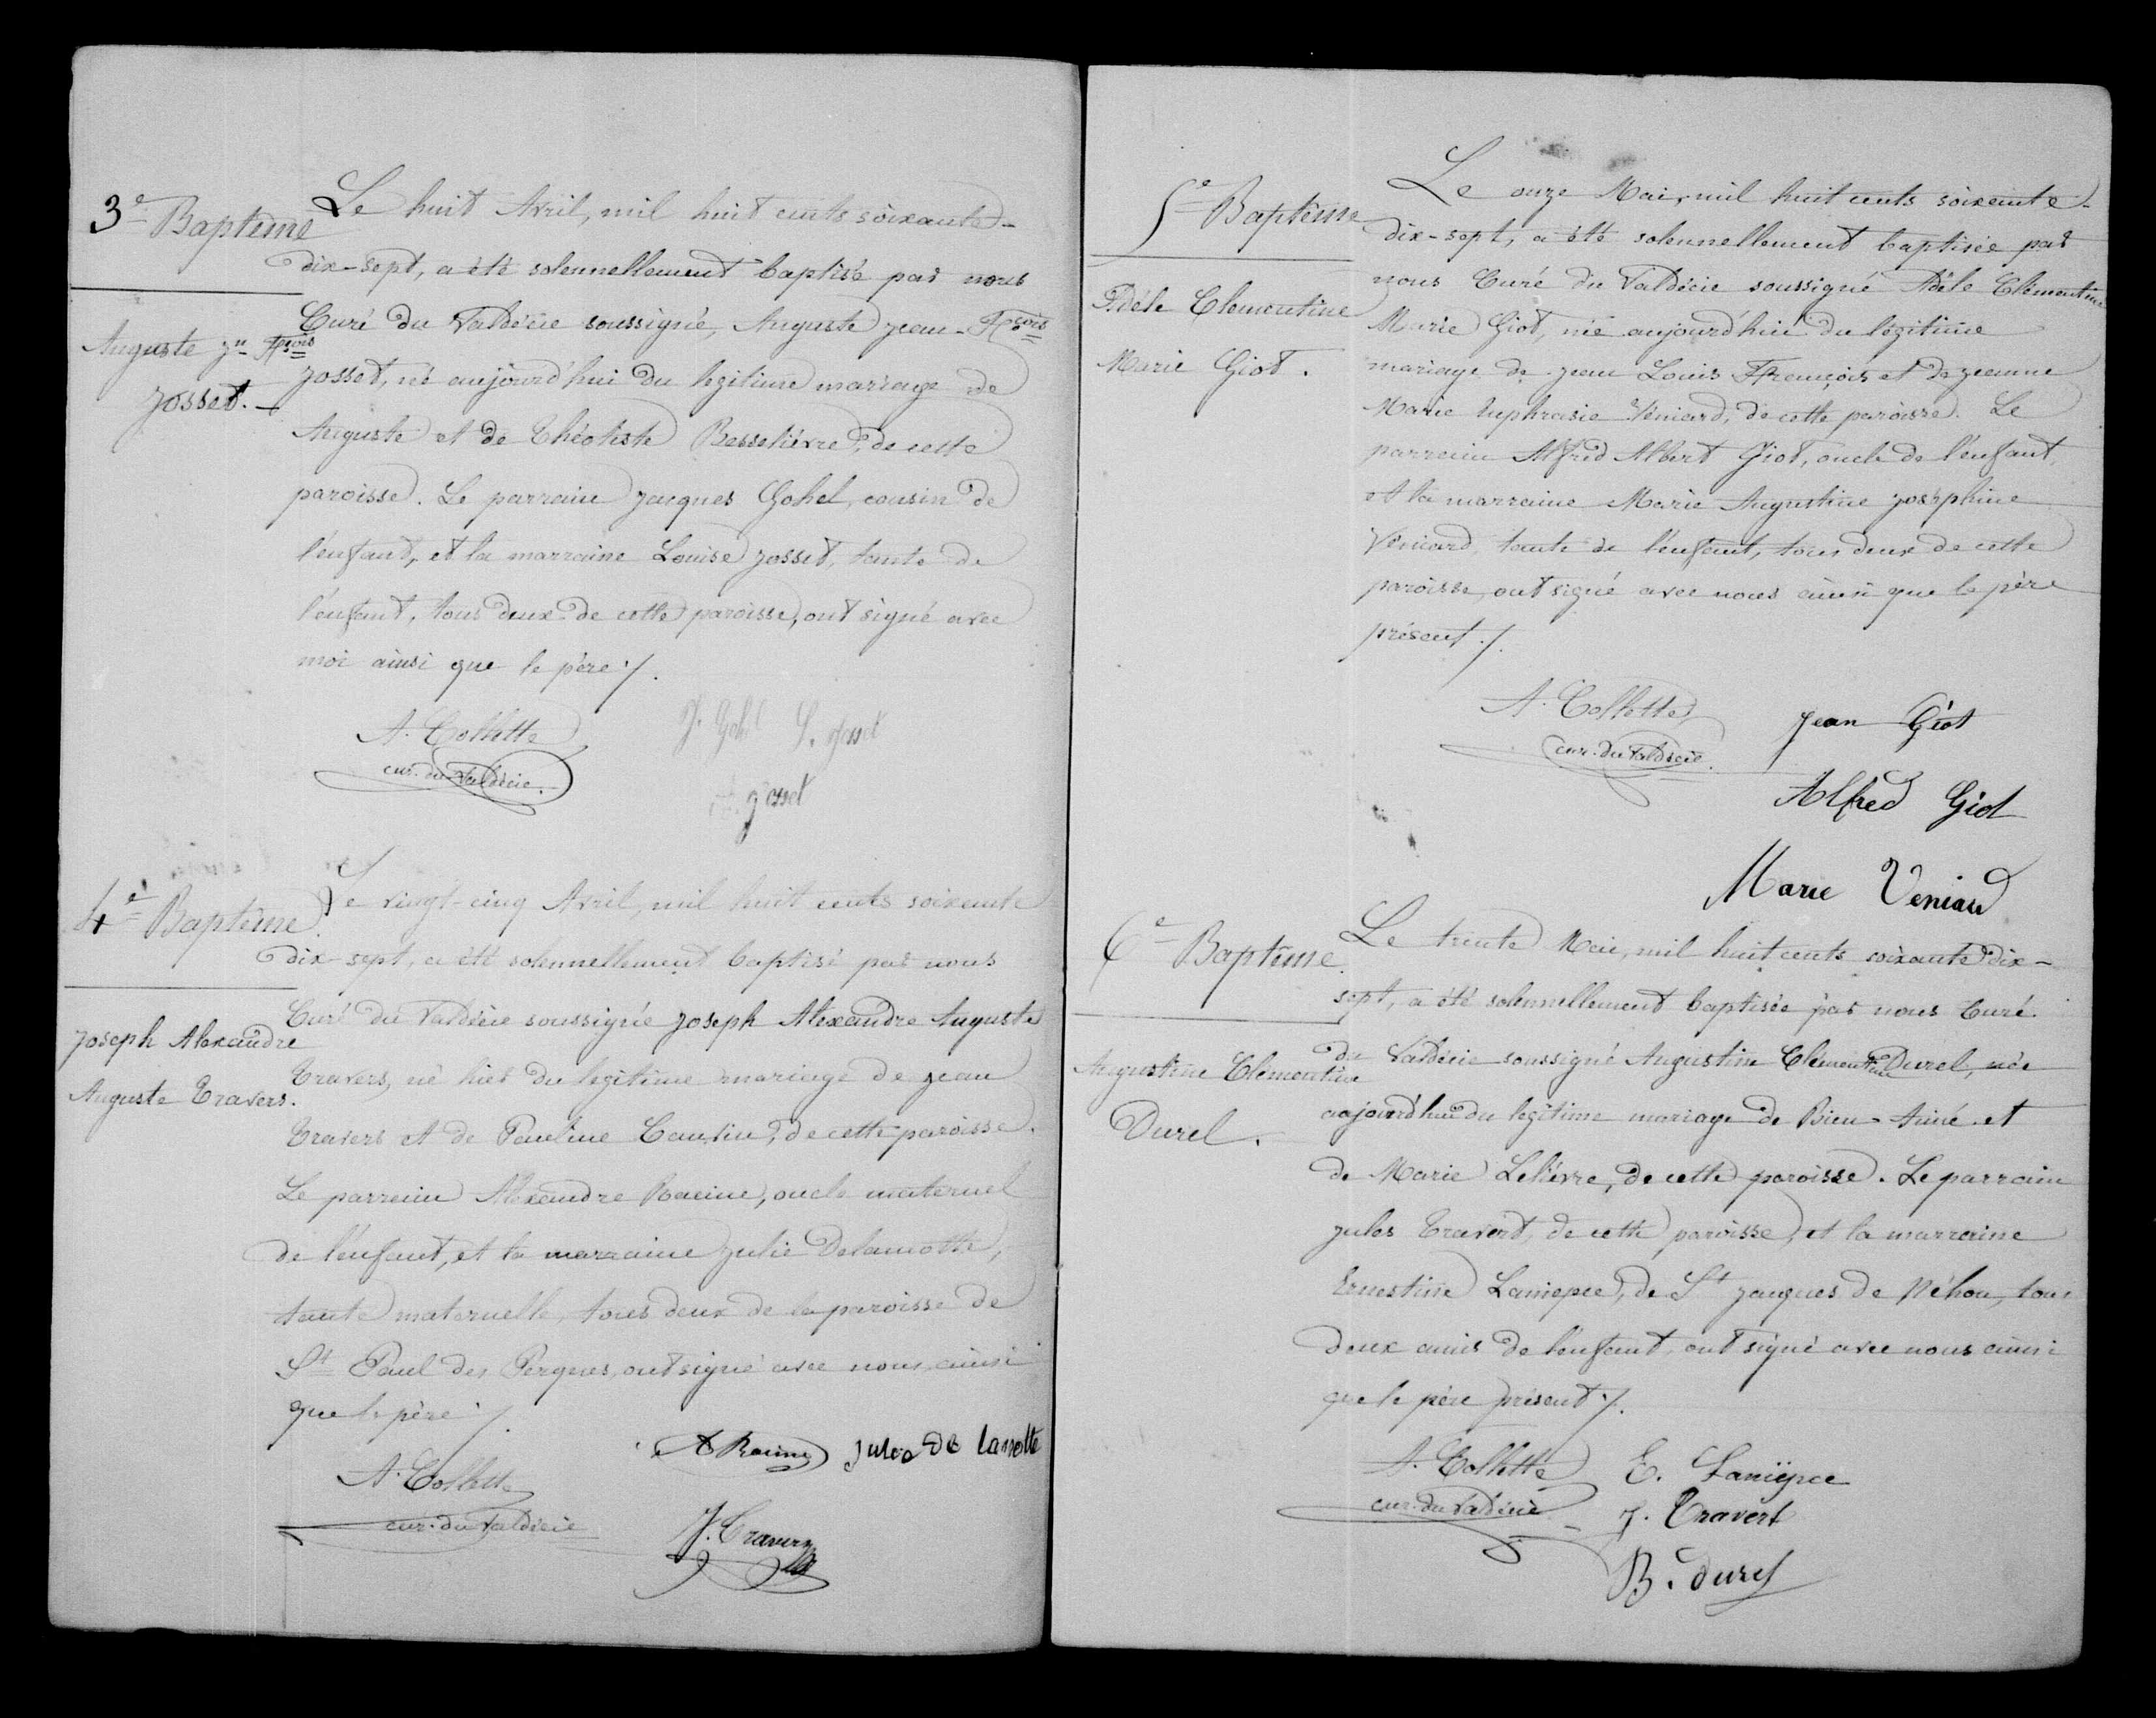 3e Baptême
Auguste Jn Fçois
Josset.
Le huit Avril, mil huit cents soixante-
dix-sept, a été solennellement baptisé par nous
Curé du Valdécie soussigné, Auguste Jean-Fçois
Josset, né aujourd'hui du légitime mariage de
Auguste et de Théotiste Besselièvre, de cette
paroisse. Le parrain Jacques Gohel, cousin de
l'enfant, et la marraine Louise Josset, tante de
l'enfant, tous deux de cette paroisse, ont signé avec
moi ainsi que le père ./.
A. Collette
cur. du Valdécie.
J. Gohel L. Josset
Josset
4e Baptême
Joseph Alexandre
Auguste Travers.
Le vingt-cinq Avril, mil huit cents soixante
dix-sept, a été solennellement baptisé par nous
Curé du Valdécie soussigné Joseph Alexandre Auguste
Travers, né hier du légitime mariage de Jean
Travers et de Pauline Cauvin, de cette paroisse.
Le parrain Alexandre Racine, oncle maternel
de l'enfant, et la marraine Julie Delamotte,
tante maternelle, tous deux de la paroisse de
St Paul des Perques, ont signé avec nous, ainsi
que le père ./.
A. Collette
cur. du Valdécie
A Racine Julie De lamotte
J. Travers
5e Baptême
Adèle Clementine
Marie Giot.
Le onze Mai, mil huit cents soixante-
dix-sept, a été solennellement baptisée par
nous Curé du Valdécie soussigné Adèle Clémentine
Marie Giot, née aujourd'hui du légitime
mariage de Jean Louis François et de Jeanne
Marie Euphrasie Véniard, de cette paroisse. Le
parrain Alfred Albert Giot, oncle de l'enfant,
et la marraine Marie Augustine Joséphine
Véniard, tante de l'enfant, tous deux de cette
paroisse, ont signé avec nous ainsi que le père
présent ./.
A. Collette
cur. du Valdécie.
Jean Giot
Alfred Giot
Marie Veniard
6e Baptême.
Augustine Clémentine
Durel.
Le trente Mai, mil huit cents soixante dix-
sept, a été solennellement baptisée par nous Curé
du Valdécie soussigné Augustine Clémentine Durel, née
aujourd'hui du légitime mariage de Bien-Aimé et
de Marie Lelièvre, de cette paroisse. Le parrain
Jules Travert, de cette paroisse, et la marraine
Ernestine Laniepce, de St Jacques de Néhou, tous
deux amis de l'enfant, ont signé avec nous ainsi
que le père présent ./.
A. Collette
cur. du Valdécie
E. Laniepce
J. Travert
B. Durel